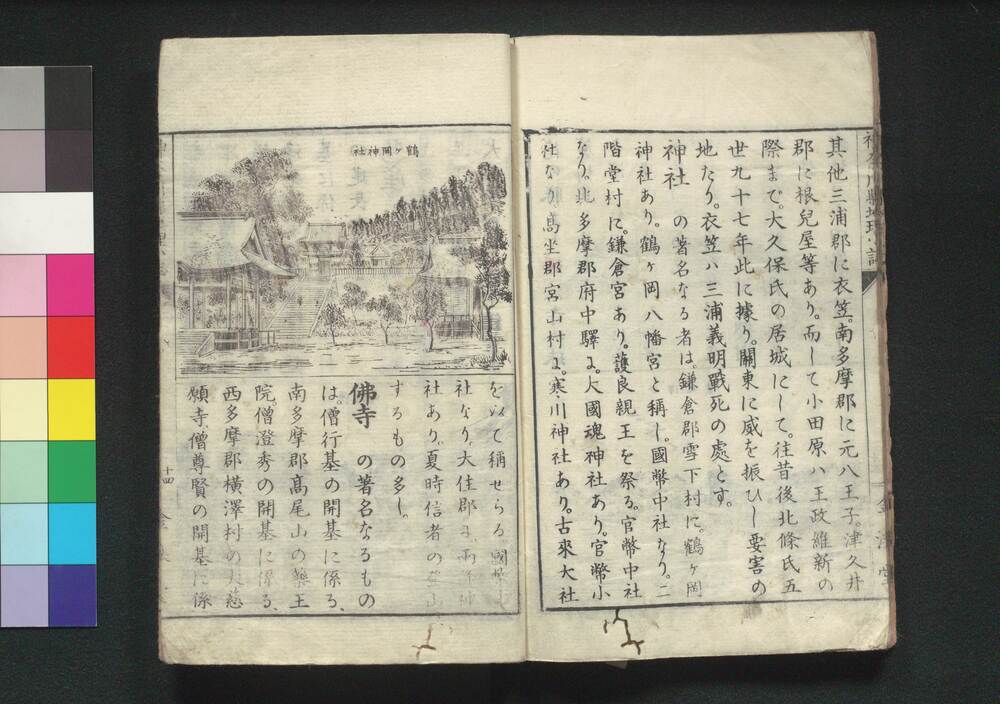 其他三浦郡に衣笠。南多摩郡に元八王子。津久井
郡に根兒屋等あり。而して小田原ハ王政維新の
際まで。大久保氏の居城にして。往昔後北條氏五
世九十七年此に據り。關東に威を振ひし要害の
地たり。衣笠ハ三浦義明戰死の處とす。
神社 の著名なる者は。鎌倉郡雪下村に。鶴ヶ岡
神社あり。鶴ヶ岡八幡宮と稱し。國幣中社なり。二
階堂村に。鎌倉宮あり。護良親王を祭る。官幣中社
なり。北多摩郡府中驛に。大國魂神社あり。官幣小
社なり。高坐郡宮山村に。寒川神社あり。古來大社
鶴ヶ岡神社
を以て稱せらる國幣
社なり。大住郡に
社あり。夏時信者の
するもの多し。
佛寺 の著名なるもの
は。僧行基の開基に係る、
南多摩郡高尾山の藥王
院僧澄秀の開基に係る、
西多摩郡横澤村の大慈
願寺、僧尊賢の開基に係
十四